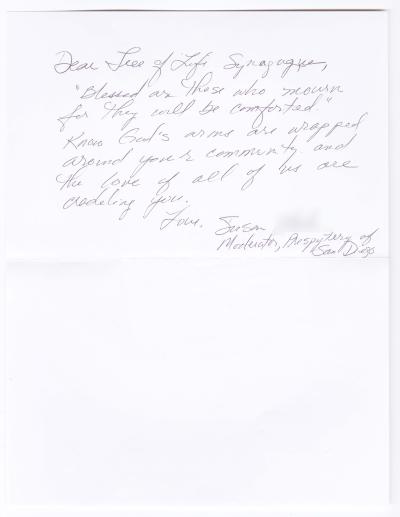 Dear Tree of Life Synagogue,
"Blessed are those who mourn
for they will be comforted."
Know God's arms are wrapped
around your community and
the love of all of us are
cradeling you.
Love, Susan
Moderator, Presbytery of
San Diego